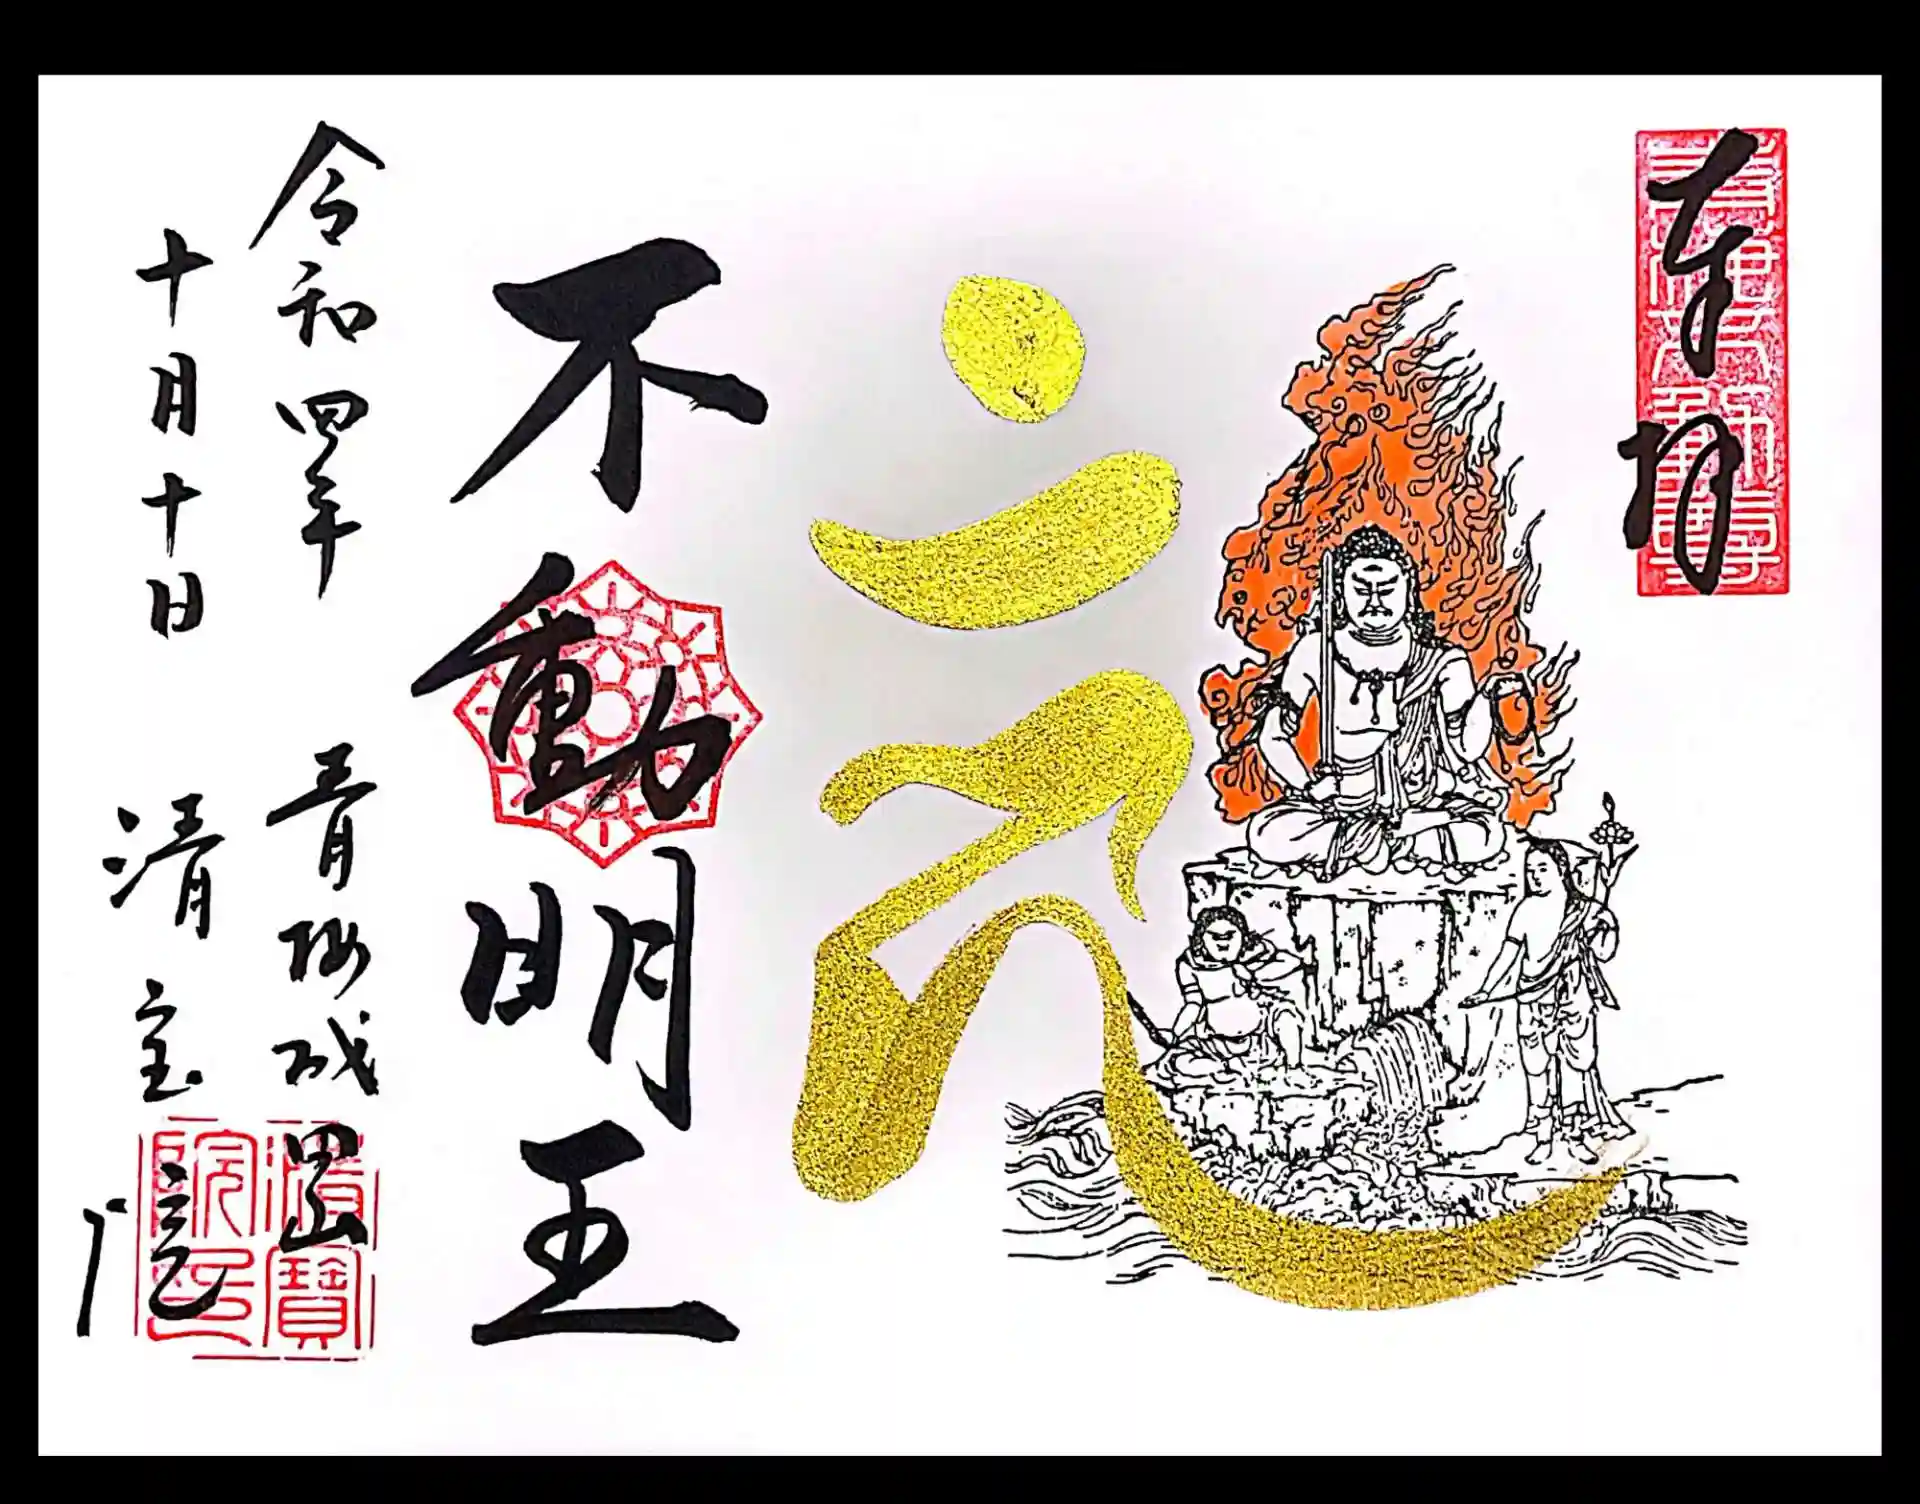 奉拝
不動明王
令和四年 青梅成田山
十月十日 清宝院
清寶院印